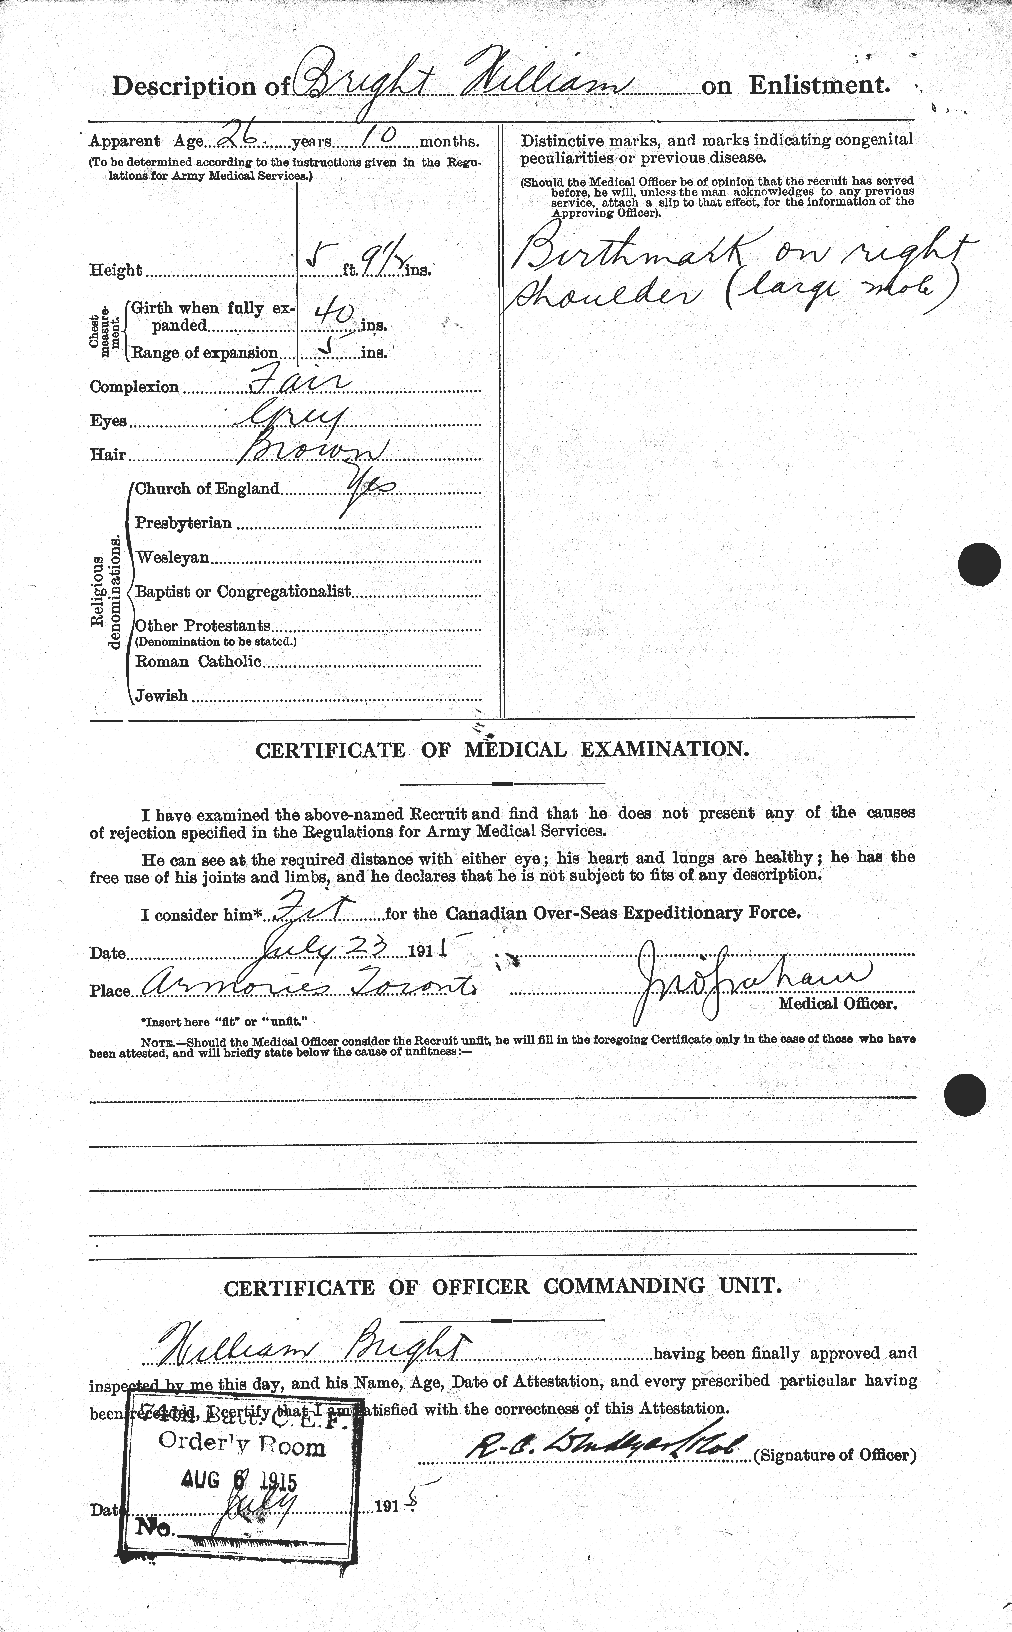 Description of Bright William on Enlistment.
Apparent Age 26 years 10 months.
(To be determined according to the instructions given in the Regu-
lations for Army Medical Services.)
Height 5 ft. 9 1/2 ins.
Chest measure-
ment.
Girth when fully ex-
panded 40 ins.
Range of expansion 5 ins.
Complexion Fair
Eyes Grey
Hair Brown
Religious
denominations.
Church of England Yes
Presbyterian
Wesleyan
Baptist or Congregationalist
Other Protestants
(Denomination to be stated.)
Roman Catholic
Jewish
Distinctive marks, and marks indicating congenital
peculiarities or previous disease.
(Should the Medical Officer be of opinion that the recruit has served
before, he will, unless the man acknowledges to any previous
service, attach a slip to that effect, for the information of the
Approving Officer).
Birthmark on right
shoulder (large mole)
CERTIFICATE OF MEDICAL EXAMINATION.
I have examined the above-named Recruit and find that he does not present any of the causes
of rejection specified in the Regulations for Army Medical Services.
He can see at the required distance with either eye; his heart and lungs are healthy; he has the
free use of his joints and limbs, and he declares that he is not subject to fits of any description.
I consider him* Fit for the Canadian Over-Seas Expeditionary Force.
Date July 23 1915
Place Armories Toronto Jno Graham
Medical Officer.
*Insert here "fit" or "unfit."
NOTE.—Should the Medical Officer consider the Recruit unfit, he will fill in the foregoing Certificate only in the case of those who have
been attested, and will briefly state below the cause of unfitness:—
CERTIFICATE OF OFFICER COMMANDING UNIT.
William Bright having been finally approved and
inspected by me this day, and his Name, Age, Date of Attestation, and every prescribed particular having
been recorded, I certify that I am satisfied with the correctness of this Attestation.
R. C. (Signature of Officer)
Date July 1915
74th Batt. C.E.F.
Order'y Room
AUG 6 1915
No.